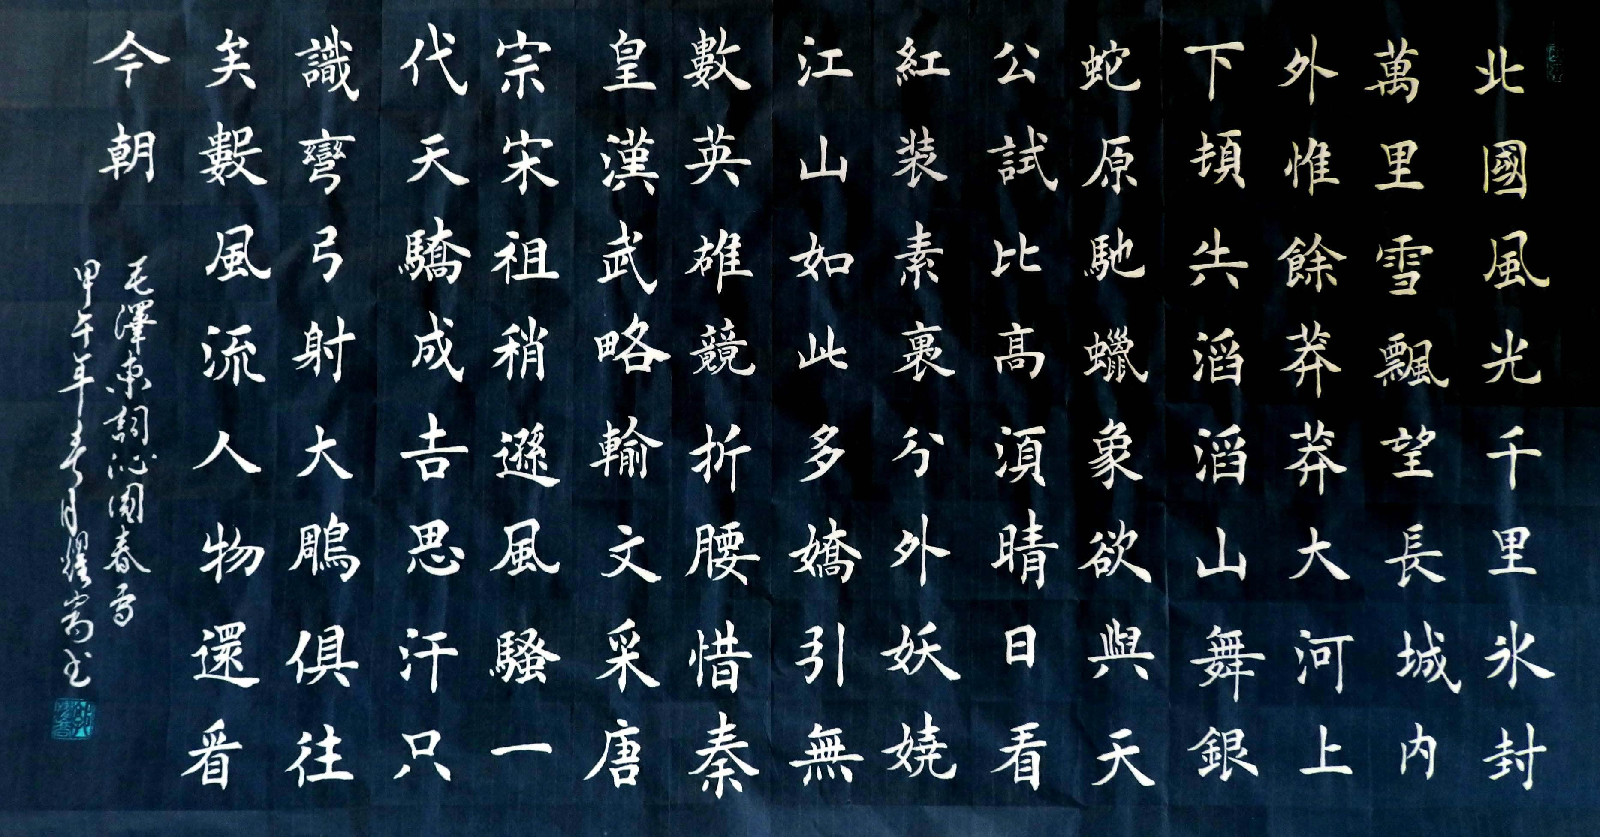 北國風光千里氷封
萬里雪飄望長城内
外惟餘莽莽大河上
下頓失滔滔山舞銀
蛇原馳蠟象欲與天
公試比高須晴日看
紅装素裹分外妖嬈
江山如此多嬌引無
數英雄競折腰惜秦
皇漢武略輸文采唐
宗宋祖稍遜風騷一
代天驕成吉思汗只
識彎弓射大鵰俱往
矣數風流人物還看
今朝
毛澤東詞沁園春雪
甲午年春月耀书